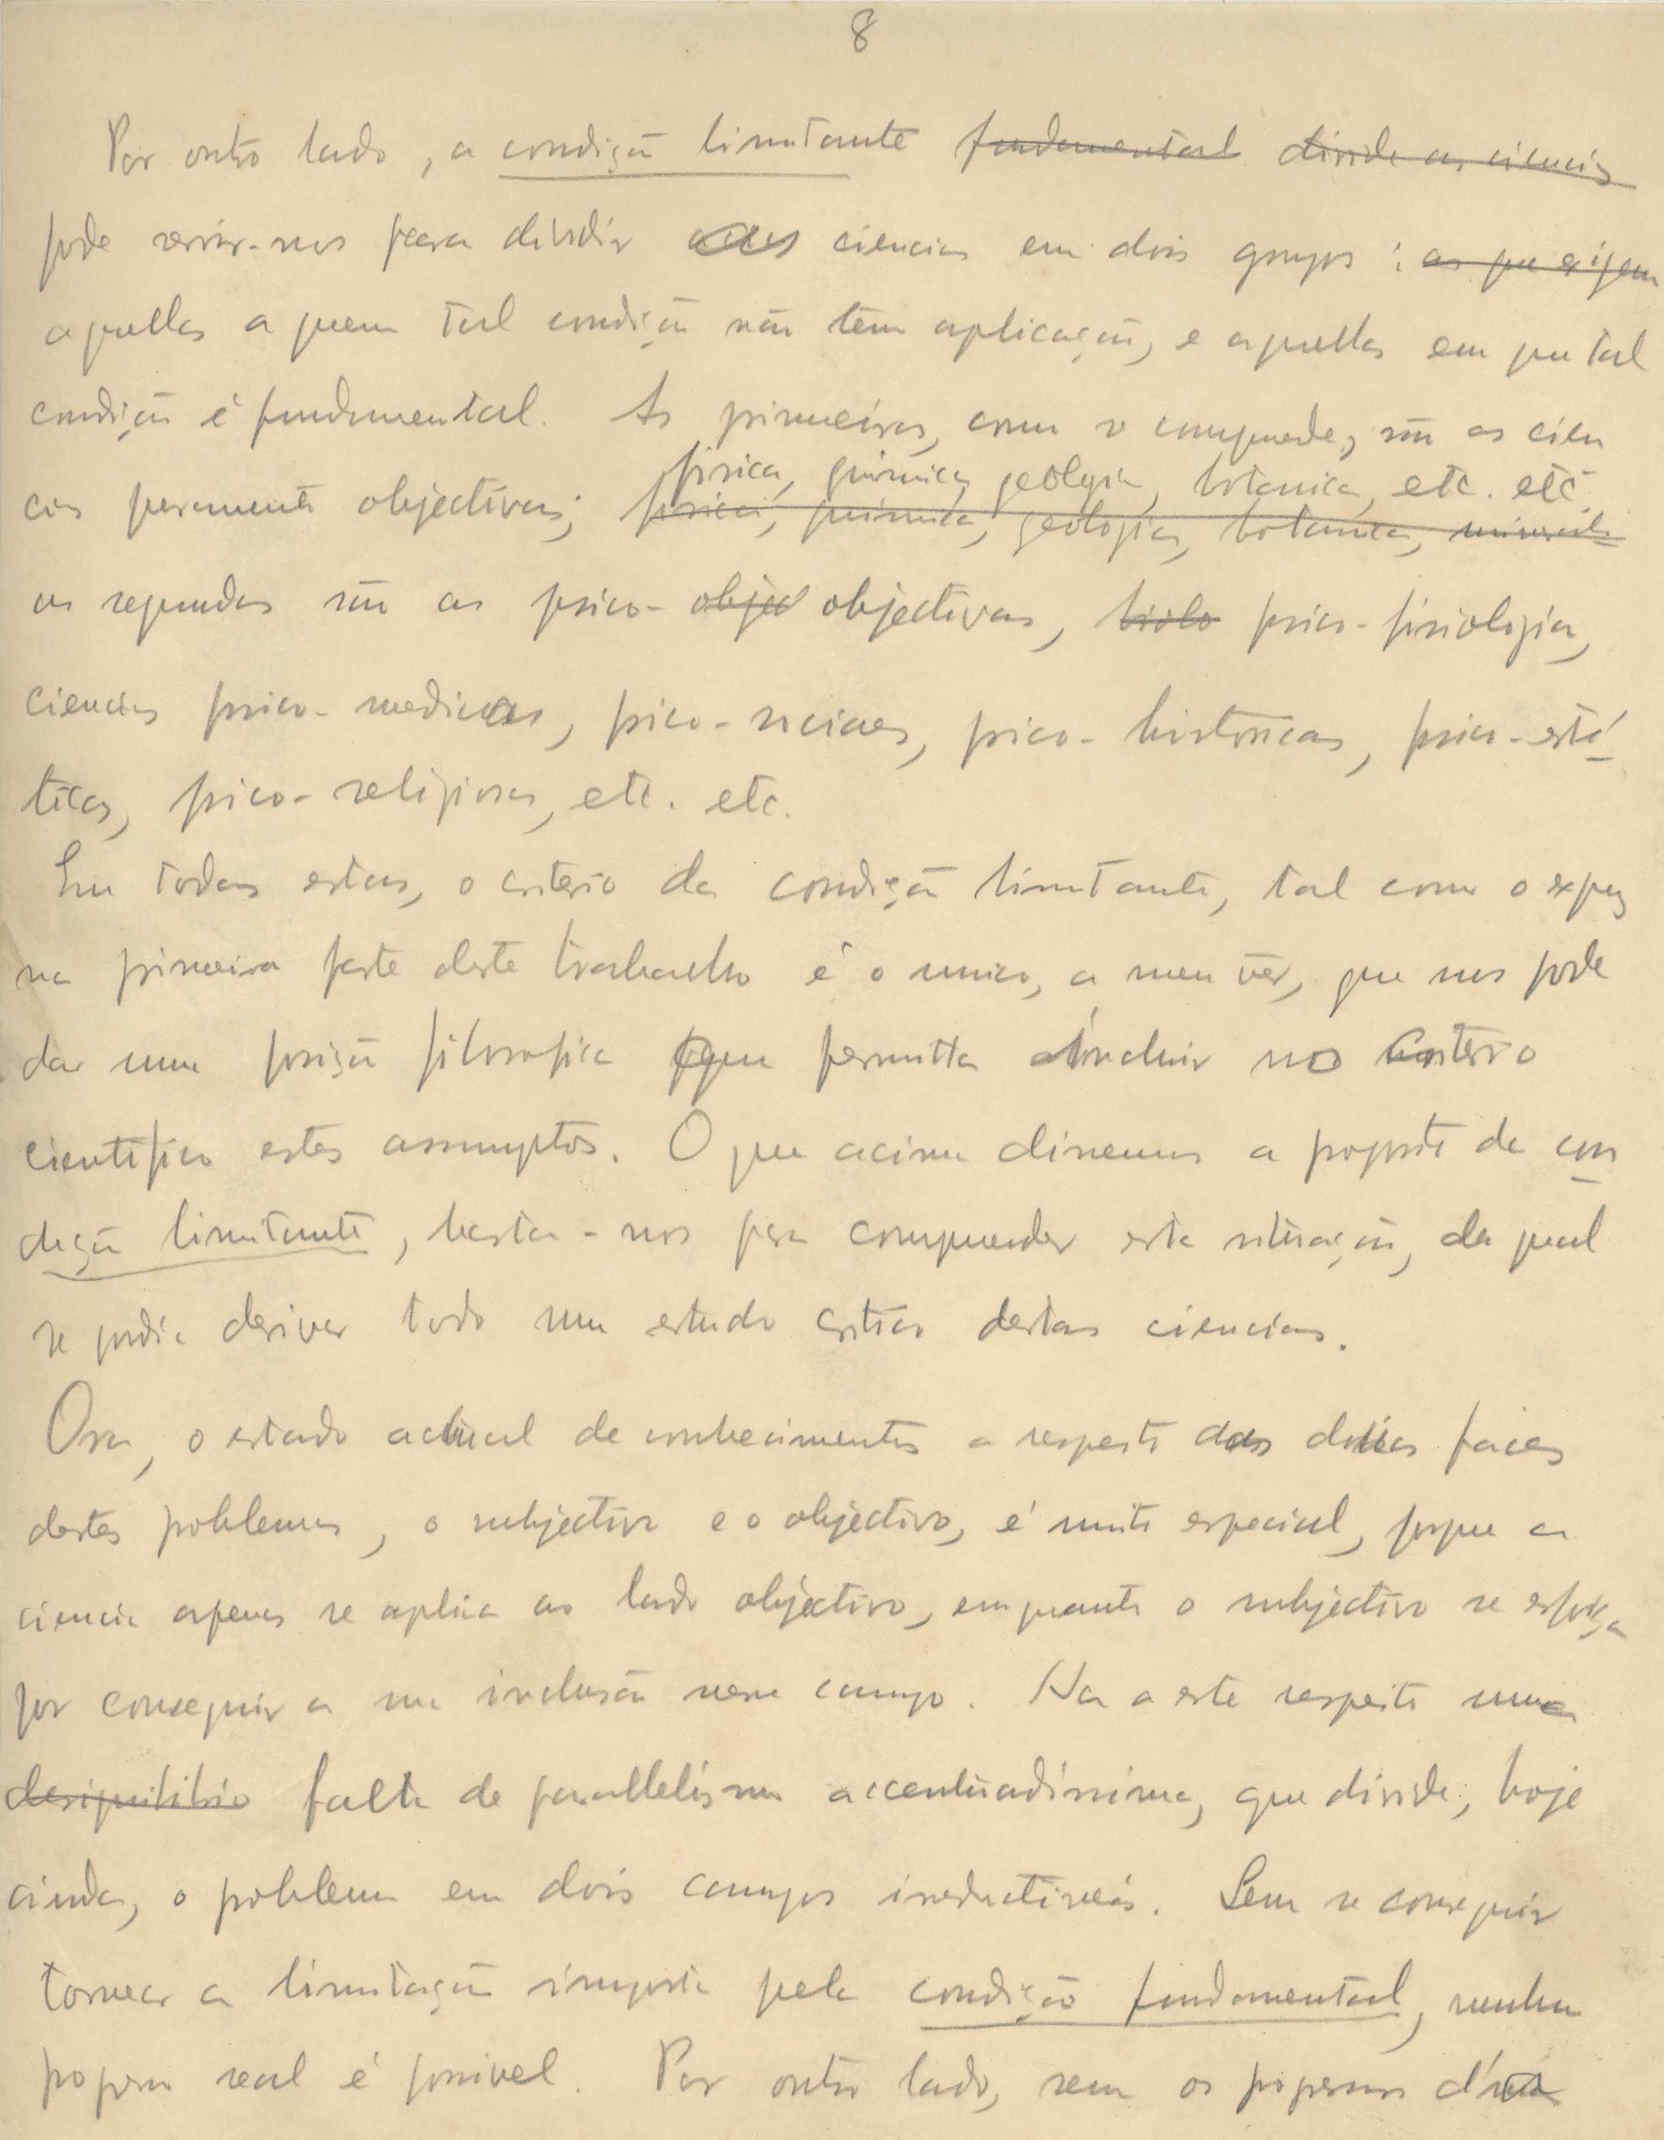 8
Por outro lado, a condição limitante fundamental divide as ciencias
pode servir-nos para dividir as ciencias em dois grupos: as que exigem
aquellas a quem tal condição não tem aplicação, e aquellas em que tal
condição é fundamental. As primeiras, como se comprende, são as cien
cias puramente objectivas; física, quimica, geologia, botanica, etc. etc.
física, quimica, geologia, botanica,
as segundas são as psico-objec objectivas, biolo psico-fisiologia,
ciencias psico-medicas, psico-sociaes, psico-historicas, psico-esté
ticas, psico-religiosas, etc. etc.
Em todas estas, o criterio da condição limitante, tal como o expuz
na primeira parte deste trabalho é o unico, a meu vêr, que nos pode
dar uma posição filosofica que permitta incluir no criterio
cientifico estes assumptos. O que acima dissemos a proposito de con
dição limitante, basta-nos para comprender esta situação, da qual
se podia derivar todo um estudo critico destas ciencias.
Ora, o estado actual de conhecimentos a respeito das duas faces
destes problemas, o subjectivo e o objectivo, é muito especial, porque a
ciencia apenas se aplica ao lado objectivo, emquanto o subjectivo se esforça
por conseguir a sua inclusão nesse campo. Ha a este respeito uma
desiquilibrio falta de parallelismo accentuadissima, que divide, hoje
ainda, o problema em dois campos irreductiveis. Sem se conseguir
tornear a limitação imposta pela condição fundamental, nenhum
progresso real é possivel. Por outro lado, sem os progressos